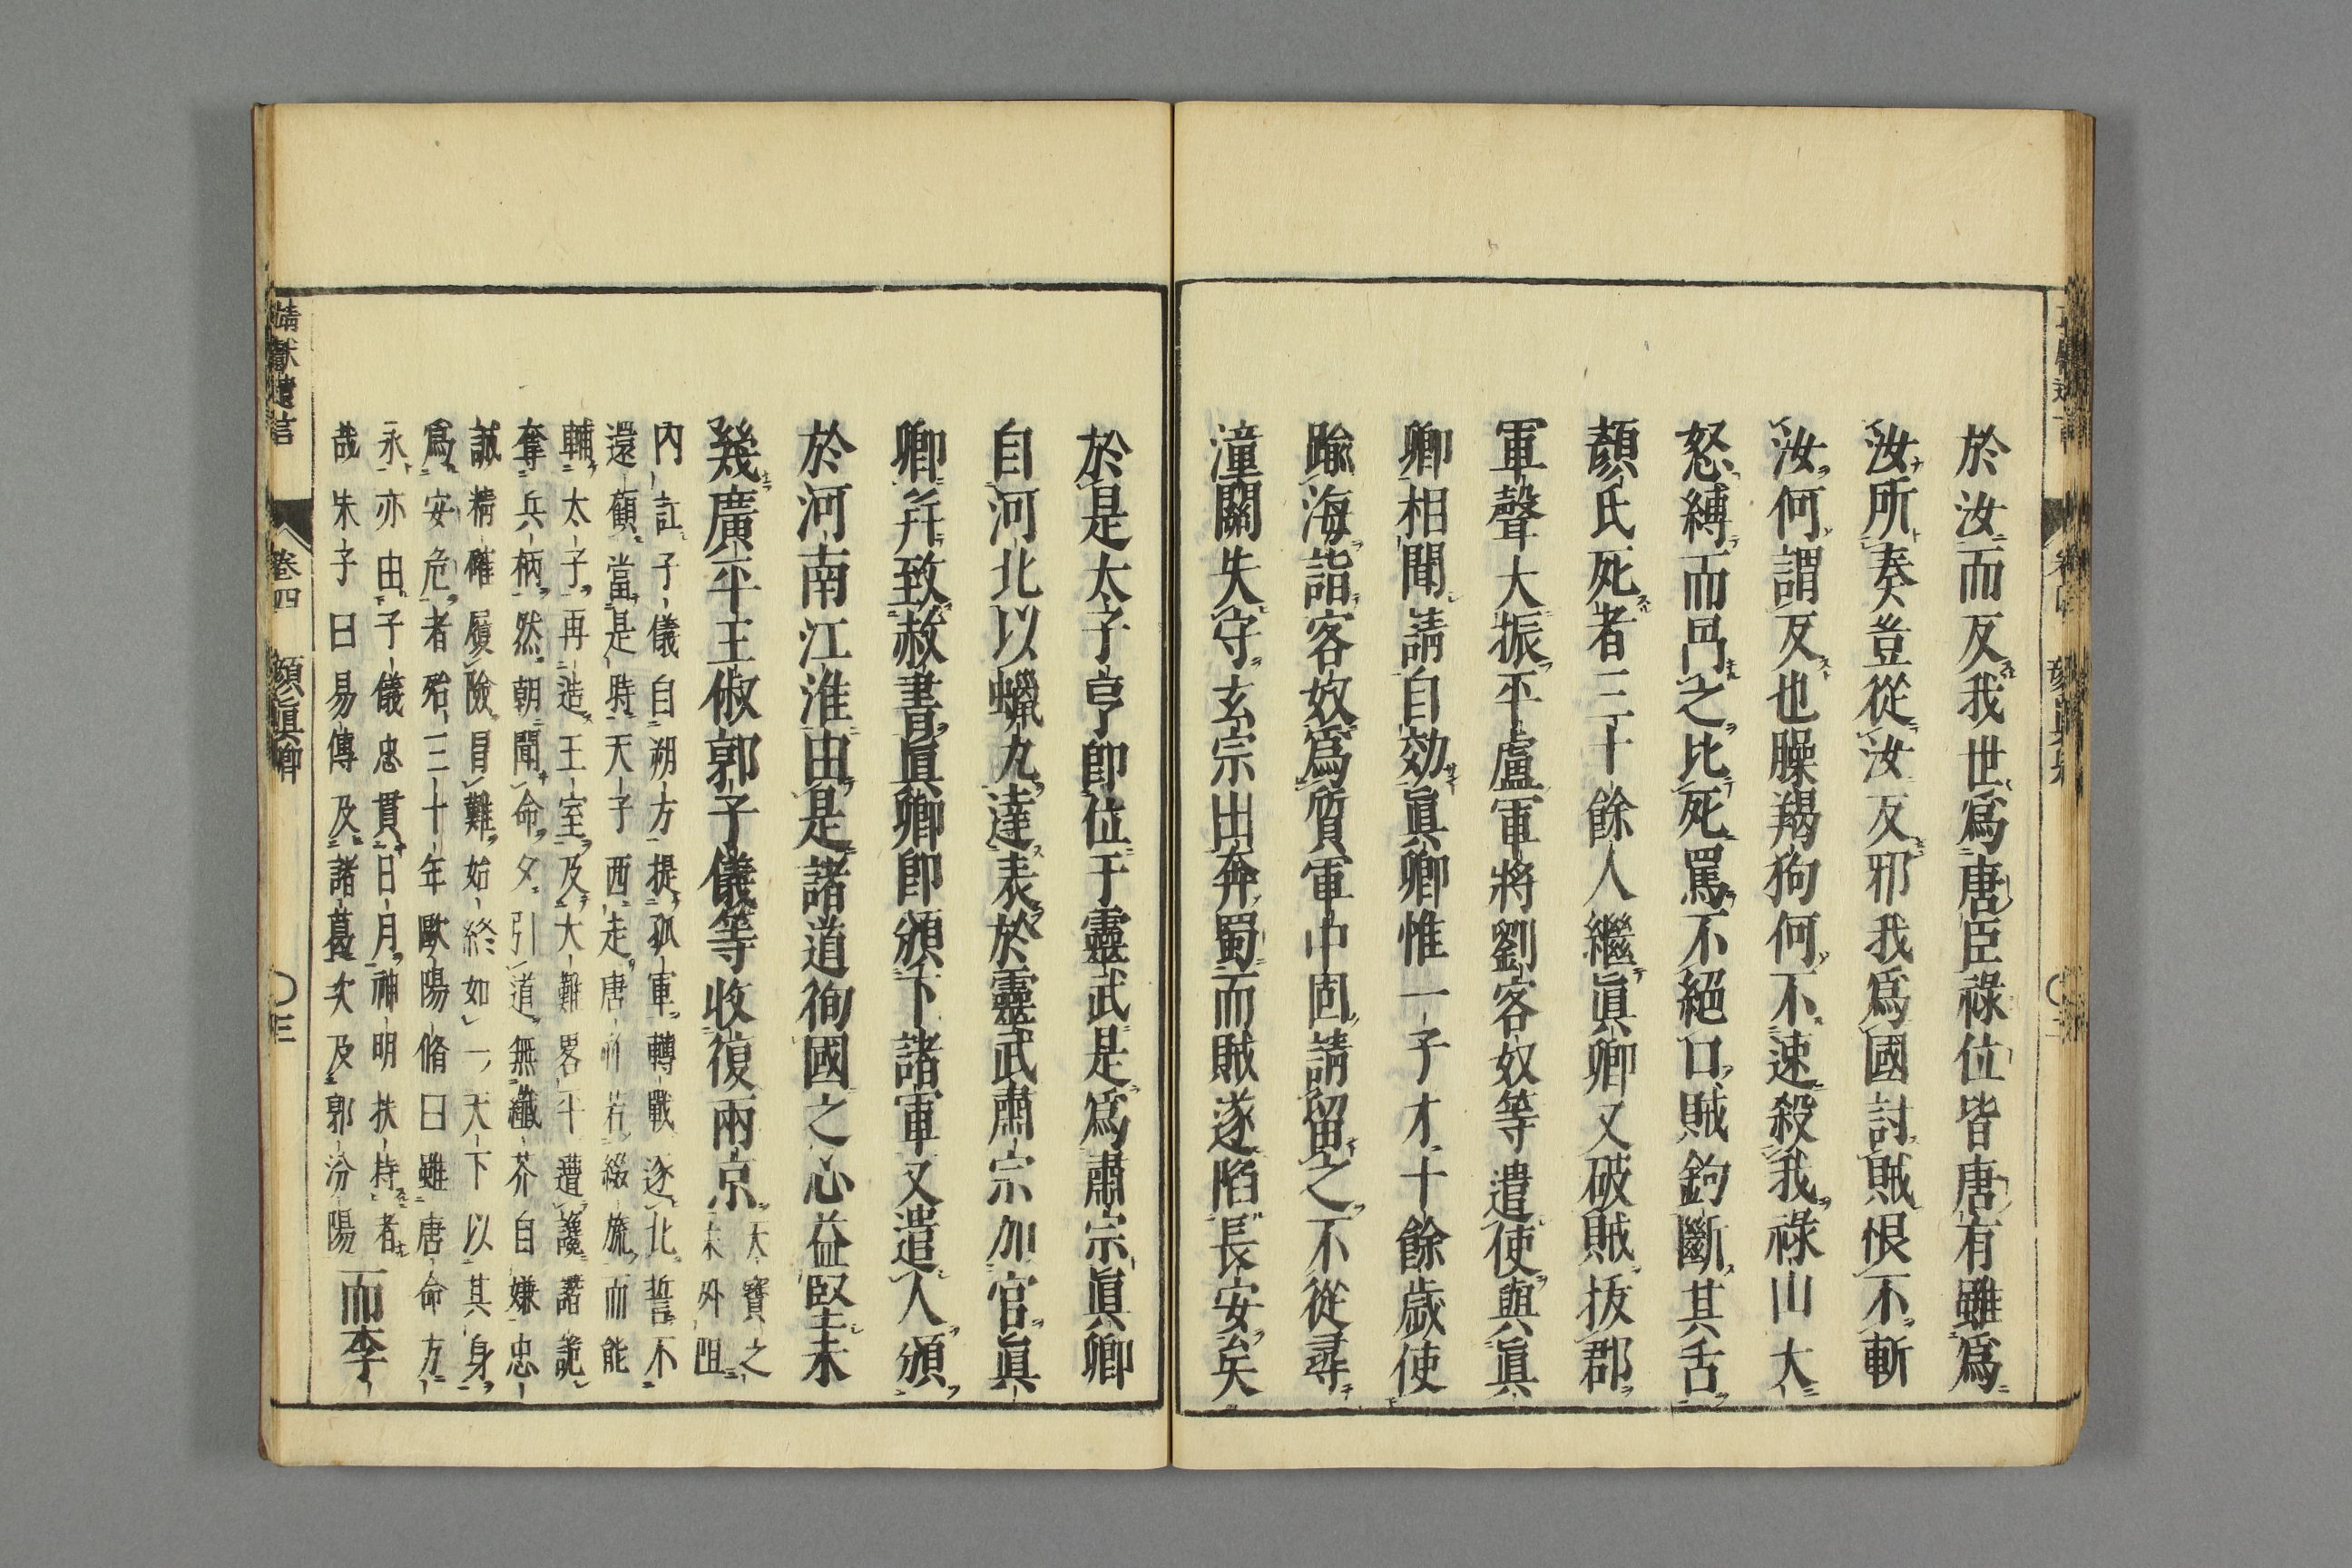 於汝而反我世爲唐臣祿位皆唐有雖爲
汝所奏豈從汝反邪我爲國討賊恨不斬
汝何謂反也臊羯狗何不速殺我祿山大
怒縛而冎之比死罵不絕口賊鉤斷其舌
顏氏死者三十餘人繼眞卿又破賊拔郡
軍聲大振平盧軍將劉客奴等遣使與眞
卿相聞請自効眞卿惟一子才十餘歲使
踰海詣客奴爲質軍中固請留之不從尋
潼關失守玄宗出奔蜀而賊遂陷長安矣
於是太子亨卽位于靈武是爲肅宗眞卿
自河北以蠟丸達表於靈武肅宗加官眞
卿幷致赦書眞卿卽頒下諸軍又遣人頒
於河南江淮由是諸道徇國之心益堅未
幾廣平王俶郭子儀等收復兩京
天寶之
末外阻
內訌子儀自朔方提孤軍轉戰逐北誓不
還顧當是時天子西走唐祚若綴旒而能
輔太子再造王室及大難畧平遭讒諧詭
奪兵柄然朝聞命夕引道無纖芥自嫌忠
誠精確履險冒難始終如一天下以其身
爲安危者殆三十年歐陽脩曰雖唐命方
永亦由子儀忠貫日月神明扶持者
哉朱子曰易傳及諸葛次及郭汾陽
而李
靖獻遺言
卷四
顏眞卿
〇三